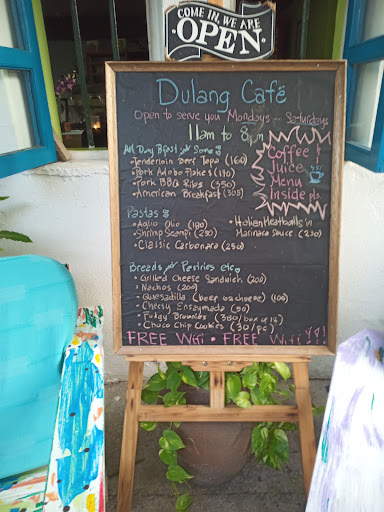 COME IN, WE ARE
OPEN
Dulang Café
Open to serve you Mondays - Saturdays
11am to 8pm
All Day Bfast and Some:
• Tenderloin Beef Tapa (160)
• Pork Adobo Flakes (170)
• Pork BBQ Ribs (350)
• American Breakfast (305)
Coffee
Juice
Menu
Inside pls.
Pastas:
• Aglio Olio (180)
• Shrimp Scampi (230)
• Classic Carbonara (250)
• Italian Meatballs in
Marinara Sauce (230)
Breads and Pastries etc.
• Grilled Cheese Sandwich (200)
• Nachos (200)
• Quesadilla (beef or cheese) (100)
• Cheesy Ensaymada (50)
• Fudgy Brownies (380/box of 12)
• Choco Chip Cookies (30/pc)
FREE Wifi • FREE Wifi